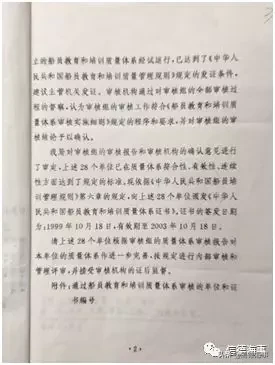 立的船员教育和培训质量体系经试运行,已达到了《中华人
民共和国船员教育和培训质量管理规则》规定的发证条件,
建议主管机关发证。审核机构通过对审核组的全部审核过
程的督察,认为审核组的审核工作符合《船员教育和培训质
量体系审核实施细则》规定的程序和要求,并对审核组的审
核结论予以确认。
我局对审核组的审核报告和审核机构的确认意见进行
了审定,上述28个单位已在质量体系符合性、有效性、连续
性方面达到了规定的标准,现依据《中华人民共和国船员培
训管理规则》第六章的规定,向上述28个单位颁发《中华人
民共和国船员教育和培训质量体系证书》,证书的签发日期
为:1999年10月18日,有效期至2003年10月18日。
请上述28个单位根据审核组的质量体系审核报告对
本单位的质量体系作进一步完善,按规定进行内部审核和
管理评审,并接受审核机构的证后监督。
附件:通过船员教育和培训质量体系审核的单位和证
书编号
·2·
信德海事